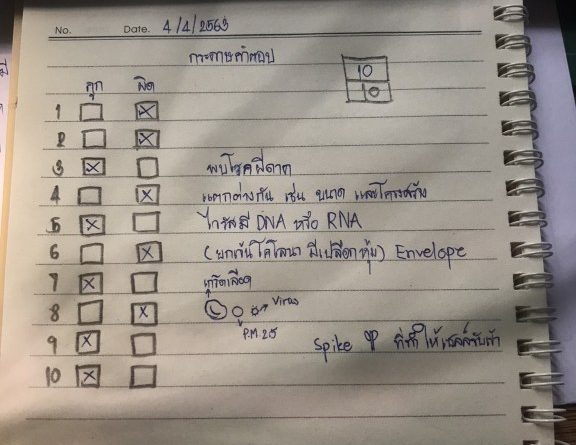 No. Date. 4/4/2563
กระดาษคำตอบ
10
10
ถูก ผิด
1
2
3 พบโรคฝีดาษ
4 แตกต่างกัน เช่น ขนาด และโครงสร้าง
5 ไวรัสมี DNA หรือ RNA
6 (ยกเว้นโคโรนา มีเปลือกหุ้ม) Envelope
7
8 Virus
P.M. 2.5
9 Spike ที่ทำให้เซลล์จับตัว
10